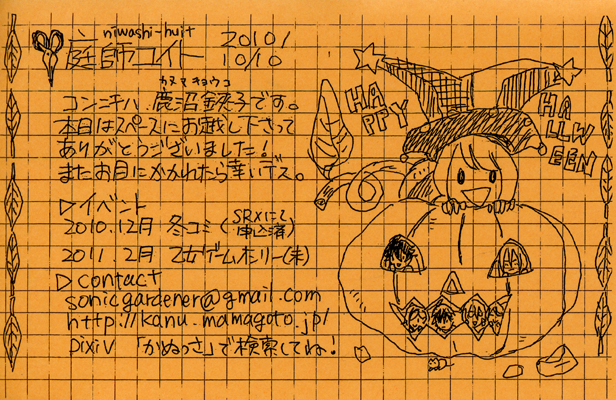 niwashi-huit
庭師ユイト
2010/
10/10
カヌマキョウコ
コンニチハ、鹿沼鋏子です。
本日はスペースにお越し下さって
ありがとうございました!
またお目にかかれたら幸いデス。
▷イベント
2010.12月 冬コミ(SRXにて申込済)
2011. 2月 乙女ゲームオンリー(未)
▷contact
sonicgardener@gmail.com
http://kanu.mamagoto.jp/
pixiv 「かぬっさ」で検索してね!
HAPPY
HALLWEEN